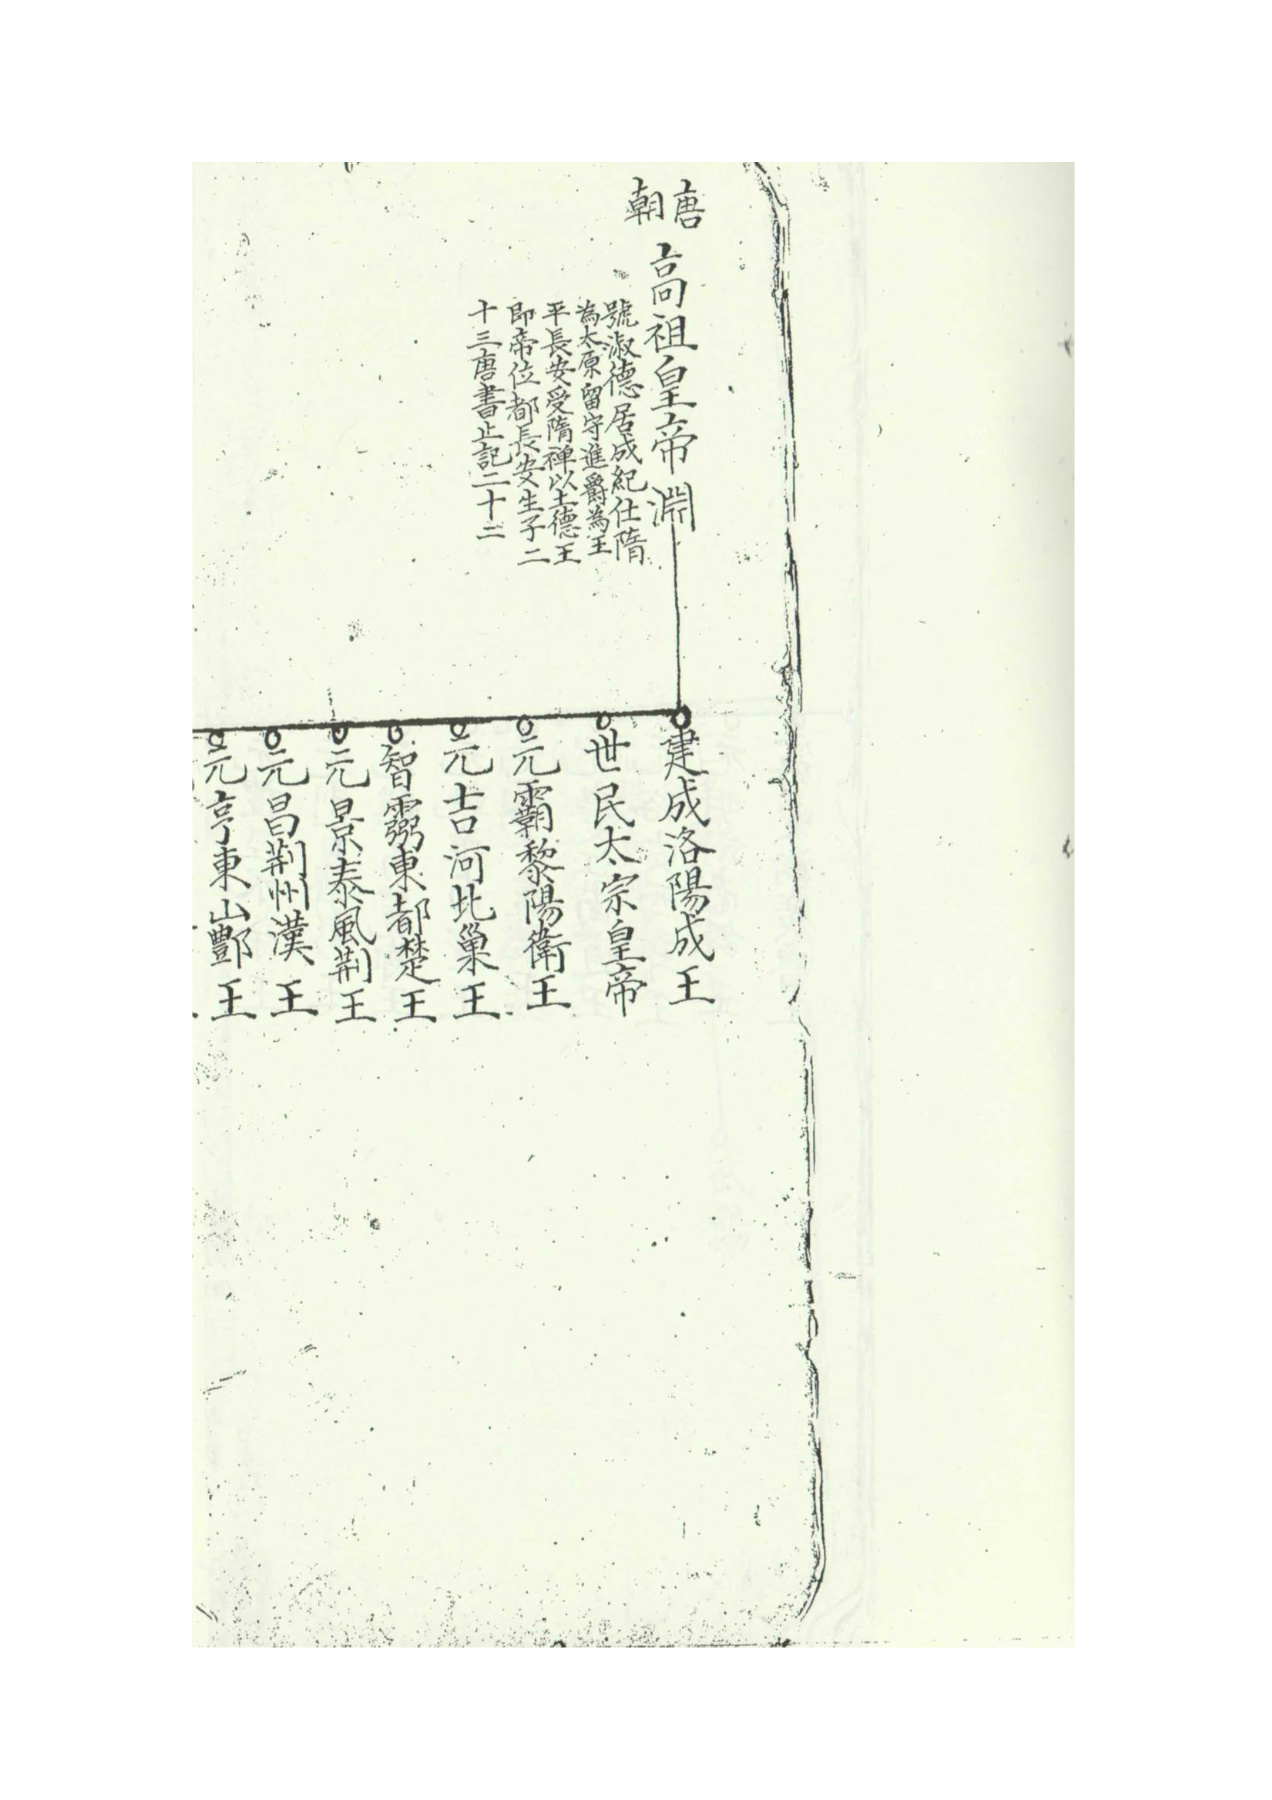 唐朝
高祖皇帝淵
號淑德居成紀仕隋
為太原留守進爵為王
平長安受隋禅以土德王
即帝位都長安生子二
十三唐書止記二十二
建成洛陽成王
世民太宗皇帝
元霸黎陽衛王
元吉河北巢王
智雲東都楚王
元景泰風荆王
元昌荆州漢王
元亨東山酆王